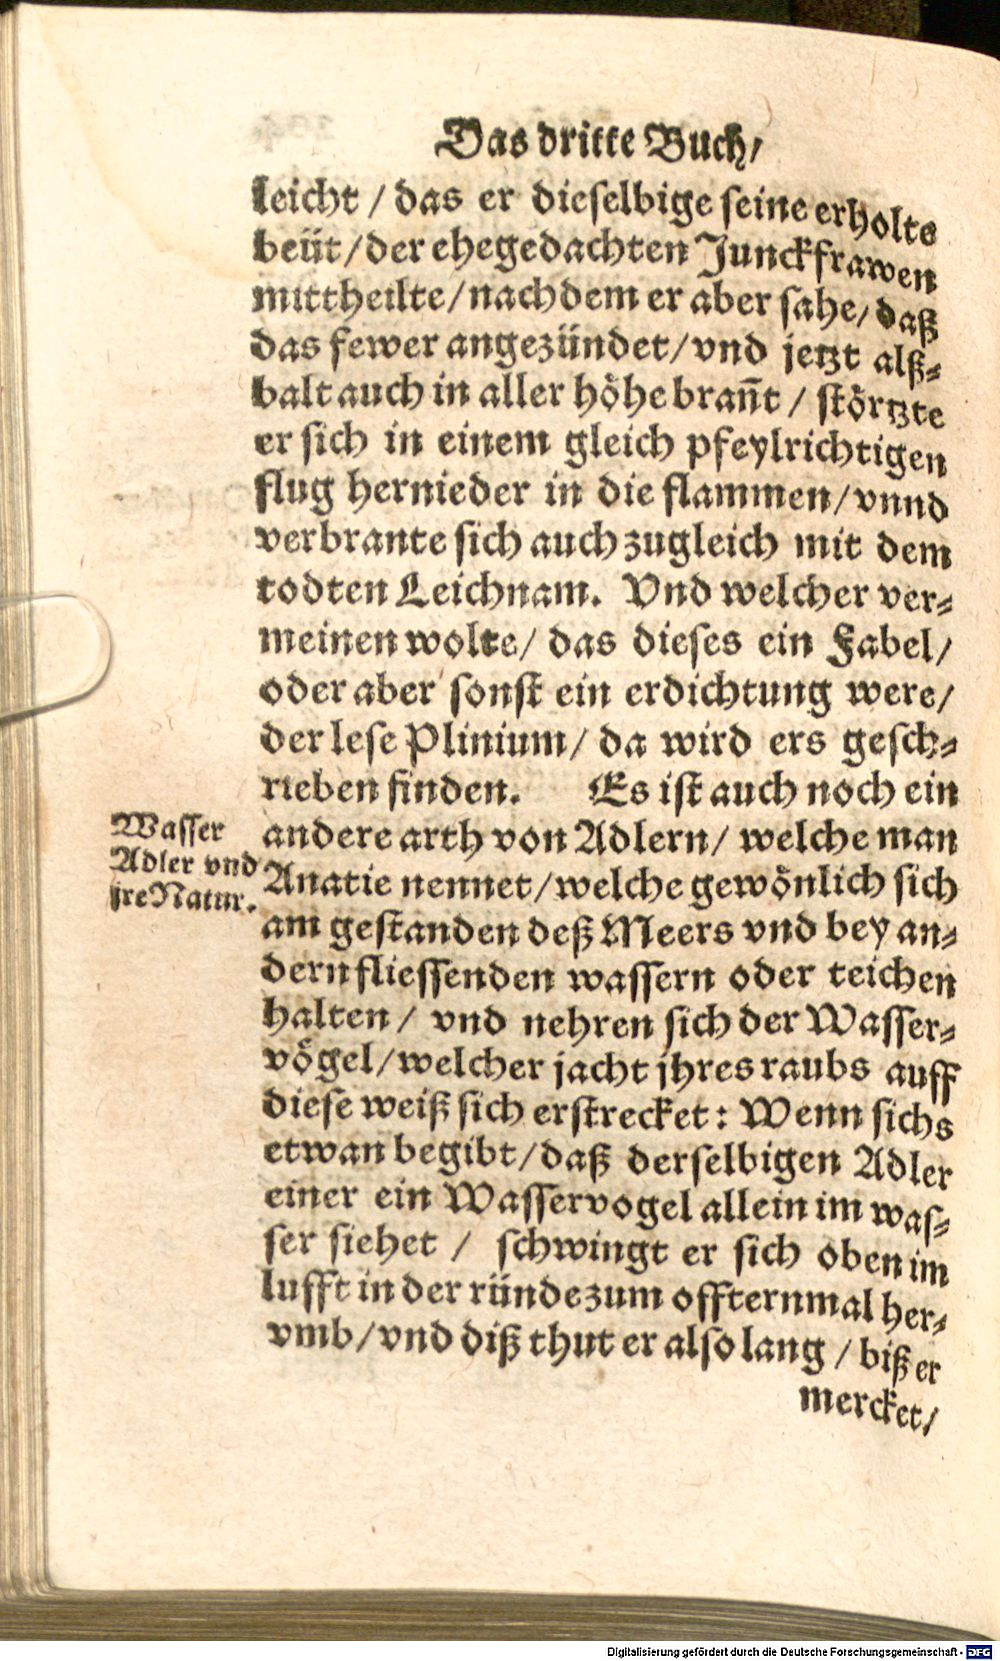 Das dritte Buch/
leicht / das er dieselbige seine erholte
beüt/der ehegedachten Junckfrawen
mittheilte/nachdem er aber sahe/daß
das fewer angezündet/vnd jetzt alß-
balt auch in aller höhe brañt / störtzte
er sich in einem gleich pfeylrichtigen
flug hernieder in die flammen/vnnd
verbrante sich auch zugleich mit dem
todten Leichnam. Vnd welcher ver-
meinen wolte/ das dieses ein Fabel/
oder aber sonst ein erdichtung were/
der lese Plinium/ da wird ers gesch-
rieben finden. Es ist auch noch ein
andere arth von Adlern/ welche man
Anatie nennet/welche gewönlich sich
am gestanden deß Meers vnd bey an-
dern fliessenden wassern oder teichen
halten / vnd nehren sich der Wasser-
vögel/welcher jacht jhres raubs auff
diese weiß sich erstrecket: Wenn sichs
etwan begibt/daß derselbigen Adler
einer ein Wasservogel allein im was-
ser siehet / schwingt er sich oben im
lufft in der ründe zum offternmal her-
vmb/vnd diß thut er also lang / biß er
mercket/
Wasser
Adler vnd
jre Natur.
Digitalisierung gefördert durch die Deutsche Forschungsgemeinschaft - DFG